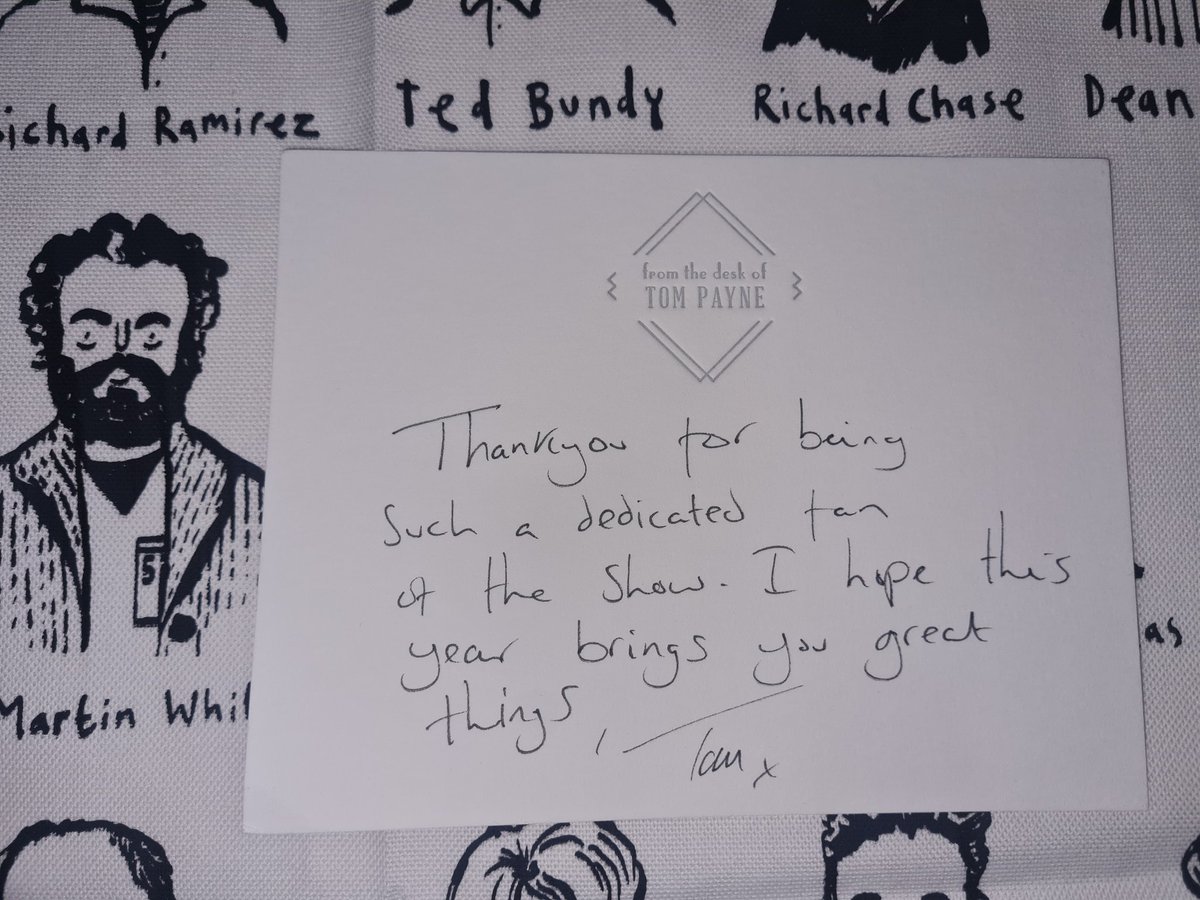 ichard Ramirez
Ted Bundy
Richard Chase
Dean
from the desk of
TOM PAYNE
Thankyou for being
Such a dedicated fan
of the Show. I hope this
year brings you great
things,
Tom x
5
Martin Whit
as